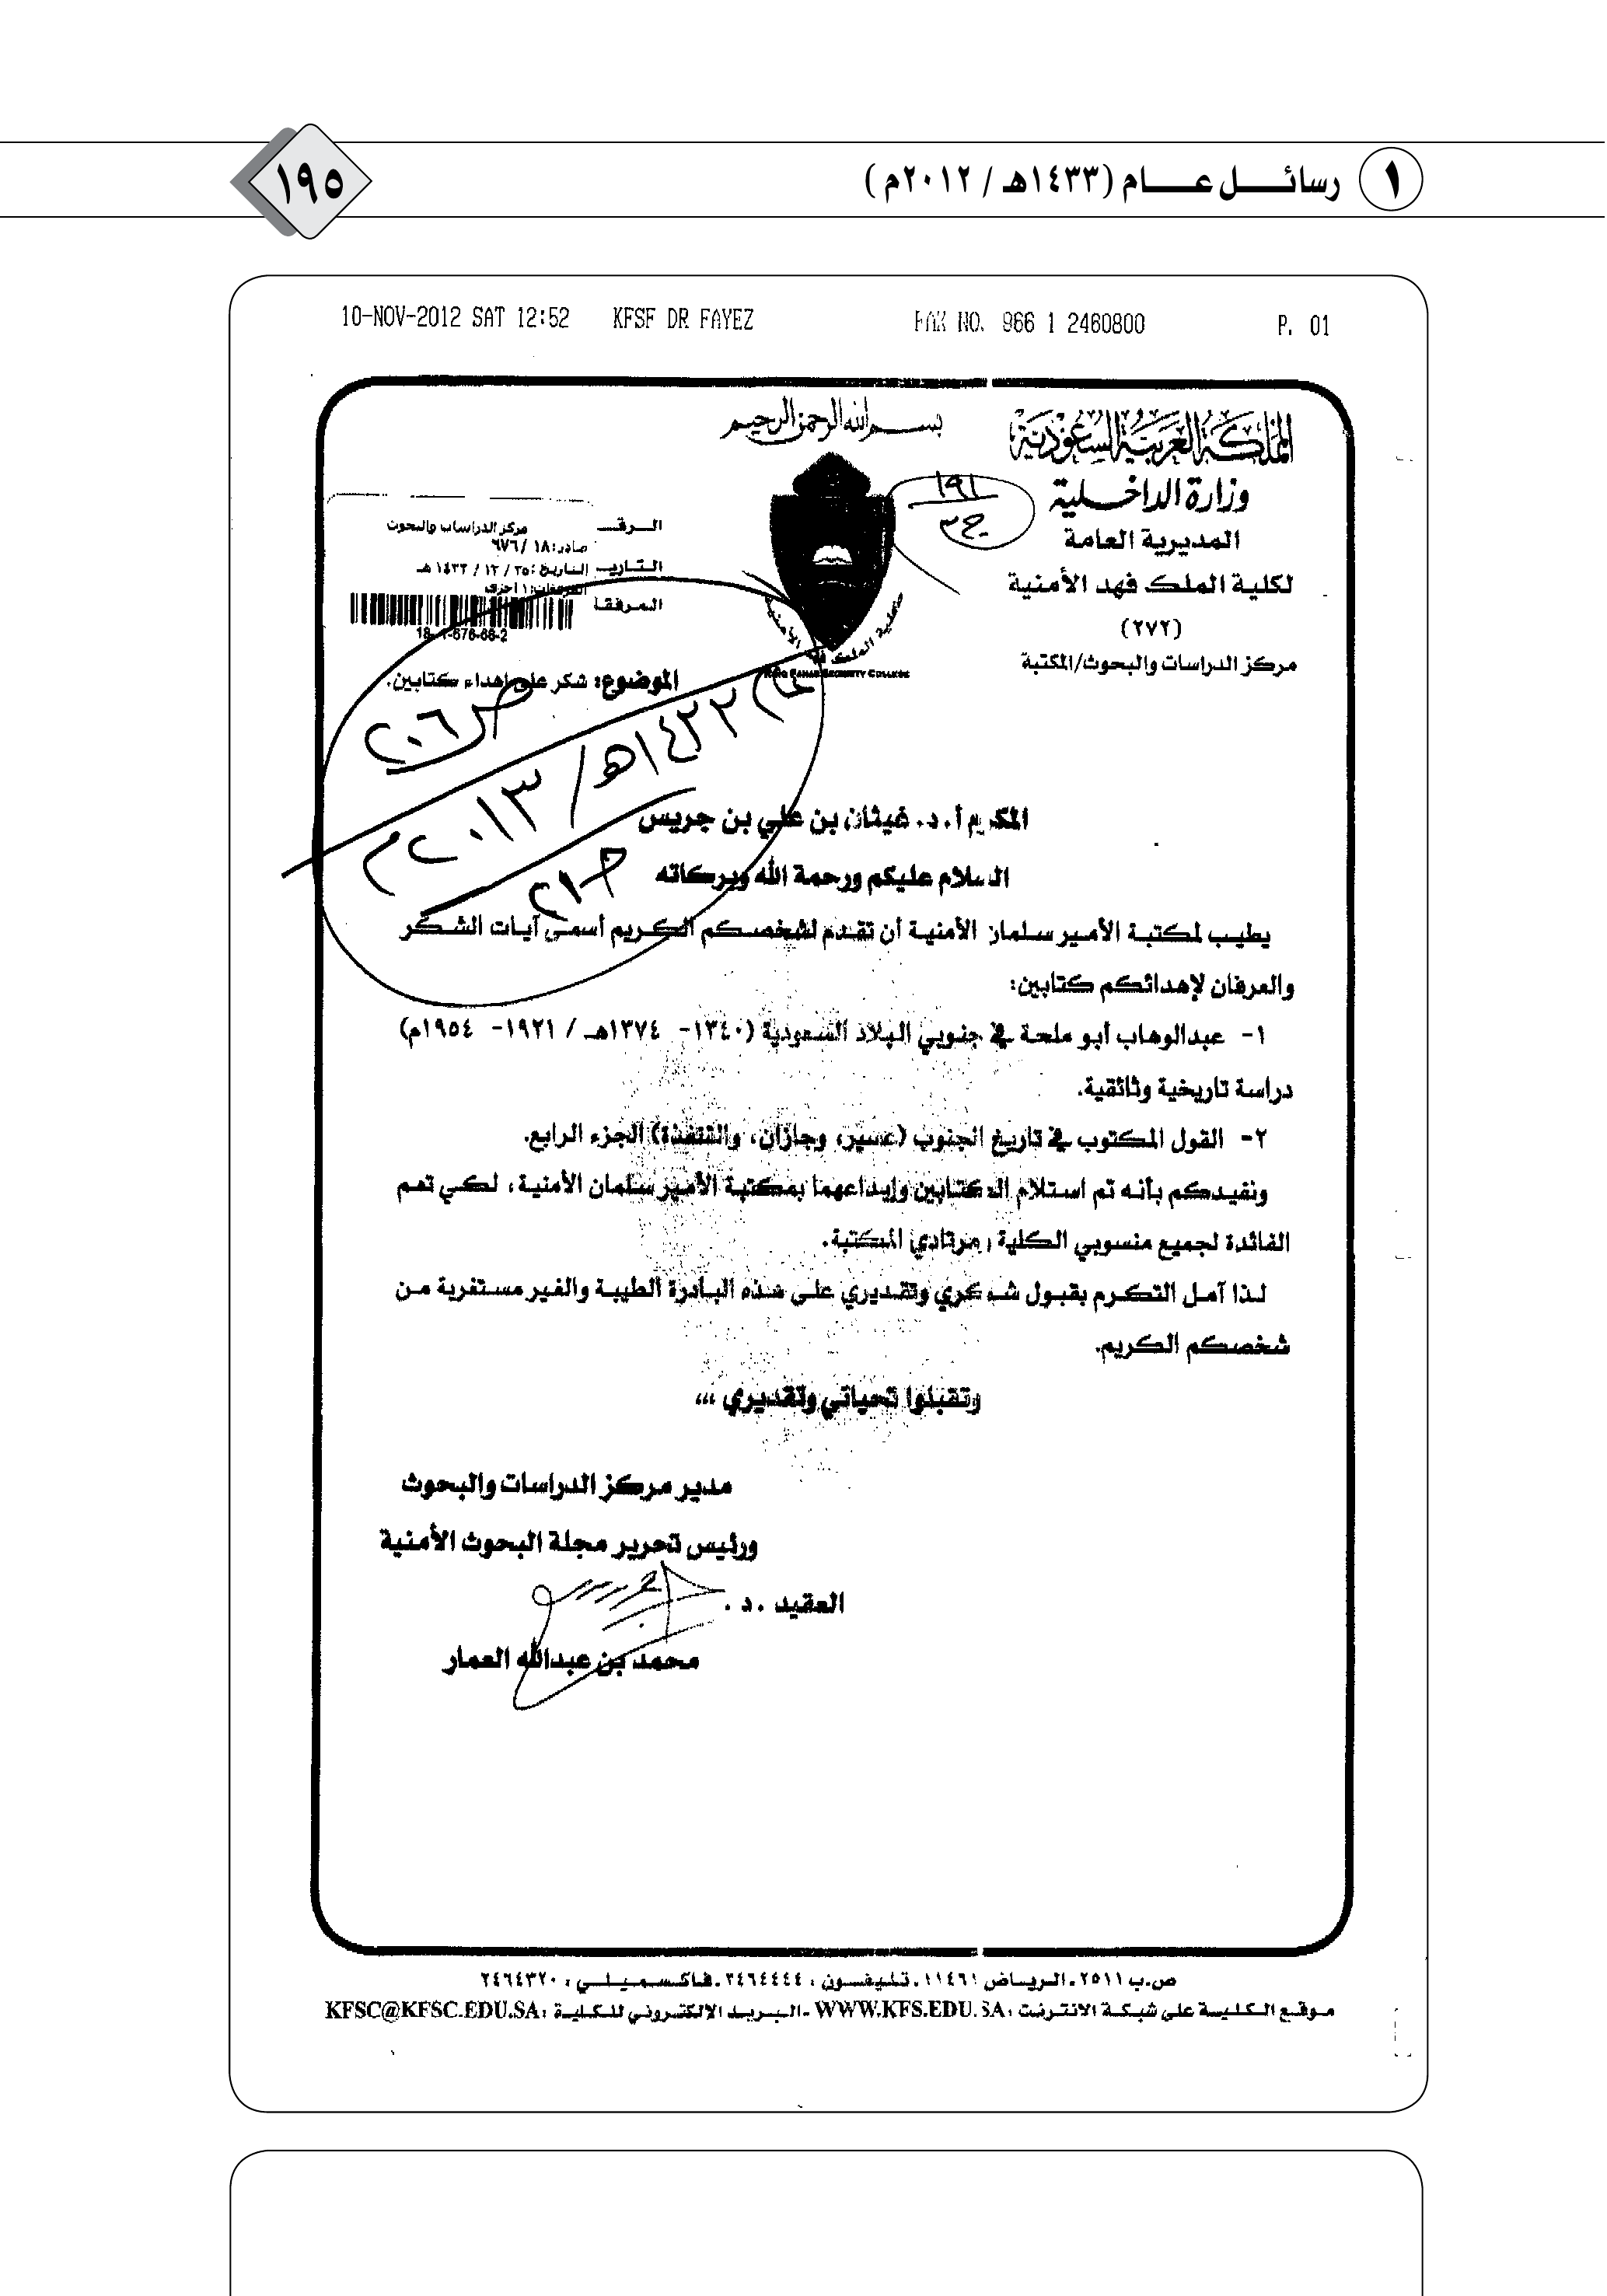 ١ رسائل عام (١٤٣٣هـ / ٢٠١٢م)
١٩٥
10-NOV-2012 SAT 12:52 KFSF DR FAYEZ FAX NO. 966 1 2460800 P. 01
بسم الله الرحمن الرحيم
المملكة العربية السعودية
وزارة الداخلية
المديرية العامة
لكلية الملك فهد الأمنية
(٢٧٢)
مركز الدراسات والبحوث/المكتبة
١٩١
ج٣
كلية الملك فهد الأمنية
KING FAHAD SECURITY COLLEGE
الرقـ مركز الدراسات والبحوث
صادر: ١٨ / ٦٧٦
التاريـ التاريخ: ٢٥ / ١٢ / ١٤٣٣ هـ
المرفقا المرفقات: ١ أخرى
18-1-676-66-2
الموضوع: شكر على إهداء كتابين.
ص ٢٠٦
١٤٣٣هـ / ٢٠١٣م
المكرم أ. د. غيثان بن علي بن جريس
السلام عليكم ورحمة الله وبركاته
يطيب لمكتبة الأمير سلمان الأمنية أن تقدم لشخصكم الكريم أسمى آيات الشكر
والعرفان لإهدائكم كتابين:
١- عبدالوهاب أبو ملحة في جنوبي البلاد السعودية (١٣٤٠- ١٣٧٤هـ / ١٩٢١- ١٩٥٤م)
دراسة تاريخية وثائقية.
٢- القول المكتوب في تاريخ الجنوب (عسير، وجازان، والقنفذة) الجزء الرابع.
ونفيدكم بأنه تم استلام الكتابين وإيداعهما بمكتبة الأمير سلمان الأمنية، لكي تعم
الفائدة لجميع منسوبي الكلية ومرتادي المكتبة.
لذا آمل التكرم بقبول شكري وتقديري على هذه البادرة الطيبة والغير مستغربة من
شخصكم الكريم.
وتقبلوا تحياتي وتقديري ،،،
مدير مركز الدراسات والبحوث
ورئيس تحرير مجلة البحوث الأمنية
العقيد .د .
محمد بن عبدالله العمار
ص.ب ٢٥١١ـ الرياض ١١٤٦١ـ تليفون : ٢٤٦٤٤٤٤ـ فاكسميلي : ٢٤٦٤٣٢٠
موقع الكلية على شبكة الانترنت : WWW.KFS.EDU.SA - البريد الالكتروني للكلية : KFSC@KFSC.EDU.SA